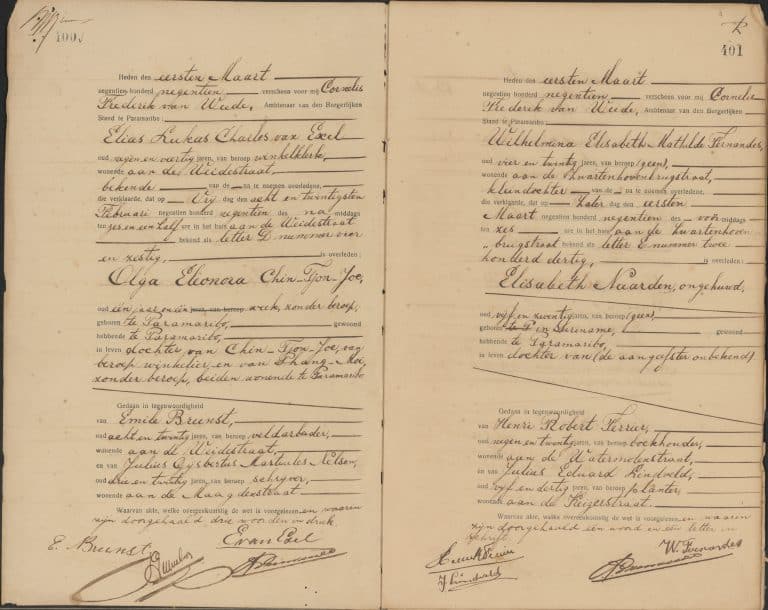 400
Heden den eersten Maart
negentien honderd negentien verscheen voor mij Cornelis
Frederik van Weede, Ambtenaar van den Burgerlijken
Stand te Paramaribo
Elias Lukas Charles van Exel
oud negen en veertig jaren, van beroep winkelklerk,
wonende aan de Weidestraat,
bekende van de na te noemen overledene,
die verklaarde, dat op Vrij dag den acht en twintigsten
Februari negentien honderd negentien des na middags
ten zes en een half ure in het huis aan de Weidestraat
bekend als letter D nummer vier
en zestig, is overleden:
Olga Eleonora Chin-Tjon-Joe,
oud één jaar en één jaren, van beroep week, zonder beroep,
geboren te Paramaribo, gewoond
hebbende te Paramaribo,
in leven dochter van Chin-Tjon-Joe, van
beroep winkelier, en van Thang-Moi,
zonder beroep, beiden wonende te Paramaribo
Gedaan in tegenwoordigheid
van Emile Brunst,
oud acht en twintig jaren, van beroep veldarbeider,
wonende aan de Weidestraat,
en van Julius Gijsbertus Nelson,
oud drie en twintig jaren, van beroep schrijver,
wonende aan de Maagdenstraat
Waarvan akte, welke overeenkomstig de wet is voorgelezen en waarin
zijn doorgehaald drie woorden in druk.
E. Brunst.
E van Exel
401
Heden den eersten Maart
negentien honderd negentien verscheen voor mij Cornelis
Frederik van Weede, Ambtenaar van den Burgerlijken
Stand te Paramaribo
Wilhelmina Elisabeth Mathilde Fernandes,
oud vier en twintig jaren, van beroep (geen),
wonende aan de Zwartenhovenbrugstraat,
kleindochter van de na te noemen overledene,
die verklaarde, dat op Zater dag den eersten
Maart negentien honderd negentien des voor middags
ten zes ure in het huis aan de Zwartenhoven
„ brugstraat bekend als letter E nummer twee
honderd dertig, is overleden:
Elisabeth Naarden, ongehuwd,
oud vijf en zeventig jaren, van beroep (geen)
geboren te P in Suriname, gewoond
hebbende te Paramaribo,
in leven dochter van (de aangeefster onbekend)
Gedaan in tegenwoordigheid
van Henri Robert Ferrier,
oud negen en twintig jaren, van beroep boekhouder,
wonende aan de Watermolenstraat,
en van Julius Eduard Lindveld,
oud vijf en dertig jaren, van beroep planter,
wonende aan de Keizerstraat.
Waarvan akte, welke overeenkomstig de wet is voorgelezen en waarin
zijn doorgehaald één woord en één letter in
schrift.
W. Fernandes
J Lindveld